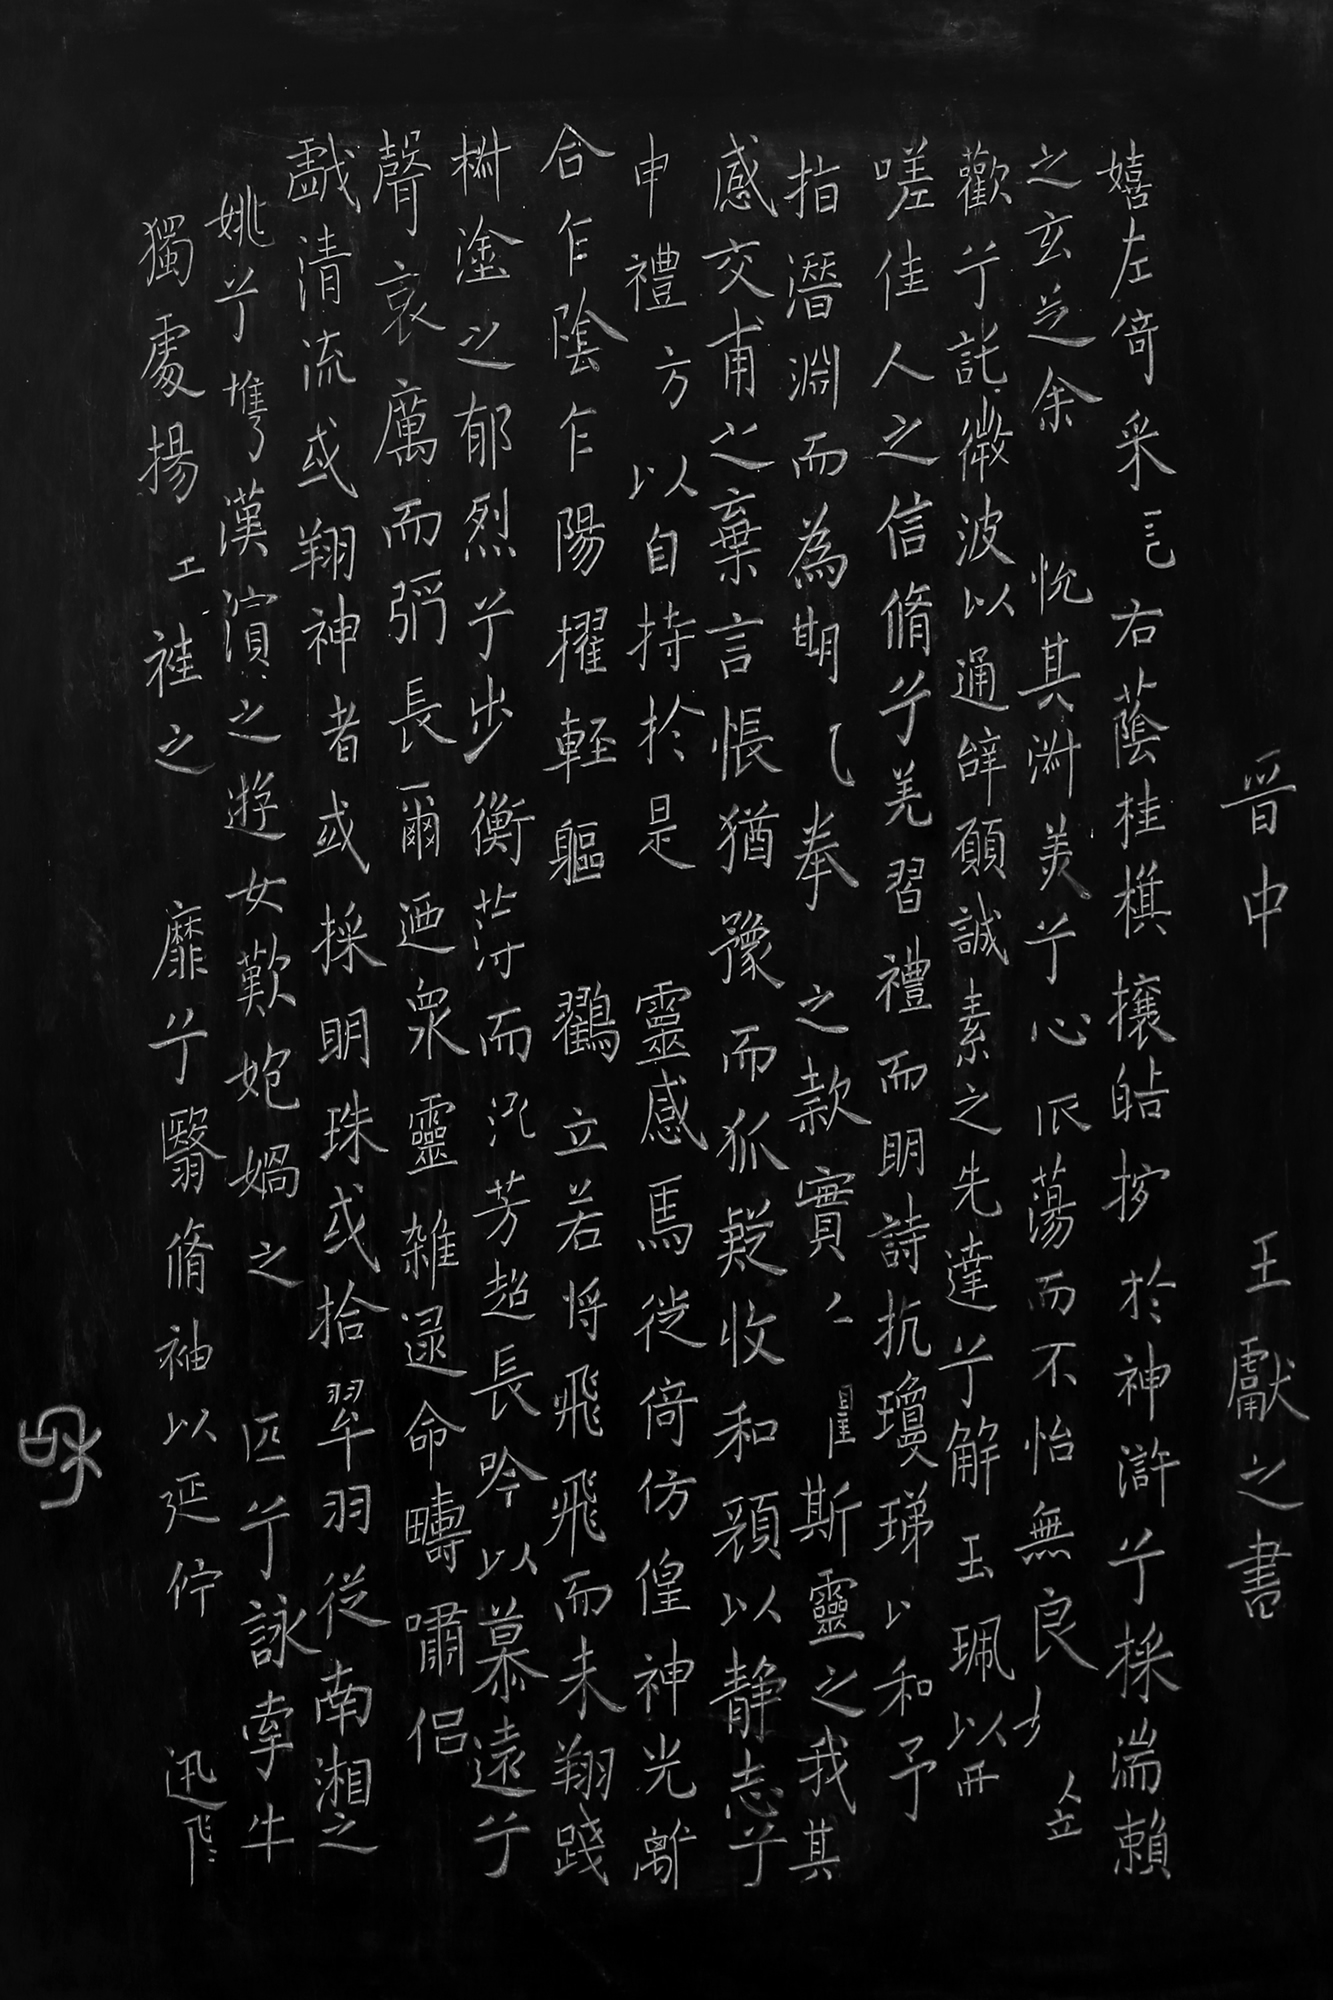 晉中 王獻之書
嬉左倚采 右蔭桂棋攘皓 於神滸兮採湍瀨
之玄芝余 悅其淑美兮心 蕩而不怡無良
歡兮託微波以通辭願誠素之先達兮解玉珮以
嗟佳人之信脩兮羌習禮而明詩抗瓊珶 和予
指潛淵而為期 奉 之款實 斯靈之我其
感交甫之棄言悵猶豫而狐疑收和顏以静志兮
申禮方以自持於是 靈感焉徙倚仿偟神光離
合乍陰乍陽擢輕軀 鸛立若將飛飛而未翔踐
樹塗之郁烈兮步衡茫而 芳超長吟以慕遠兮
聲哀厲而弥長爾迺眾靈雜遝命疇嘯侶
戲清流或翔神者或採明珠或拾翠羽從南湘之
姚兮 漢濱之遊女歎 媧之 匹兮詠牽牛
獨處揚 袿之 靡兮翳脩袖以延佇 迅